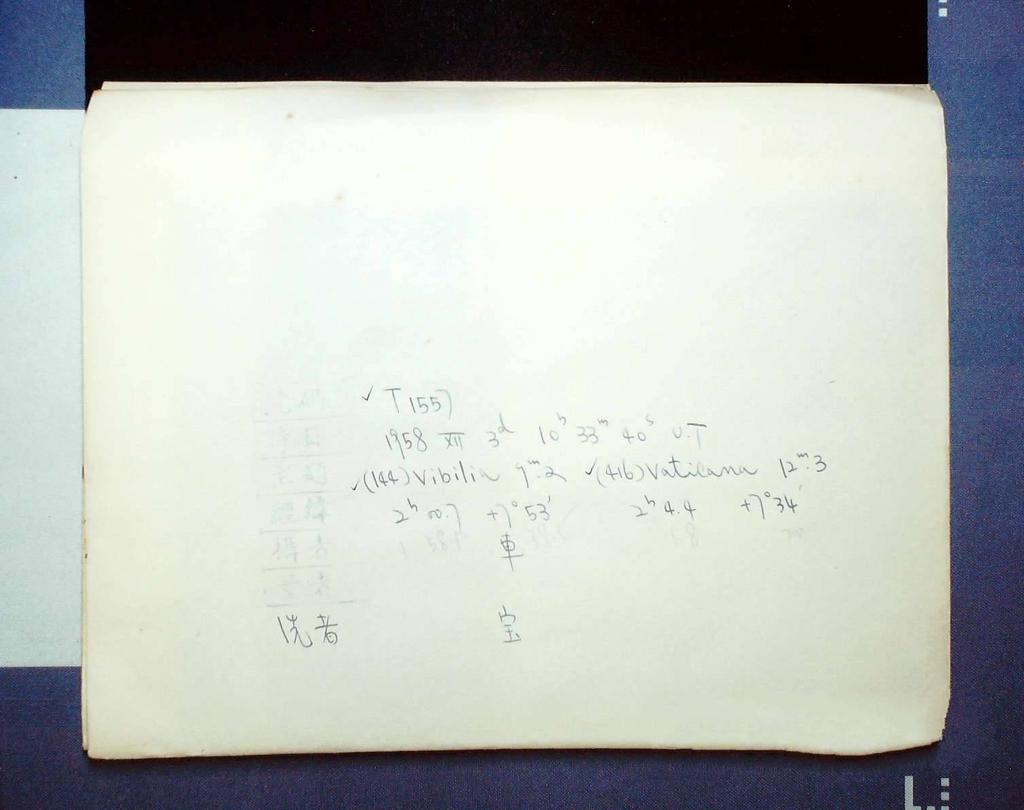 ✓ T 1557
1958 XII 3ᵈ 10ʰ 33ᵐ 40ˢ U.T
✓(144) Vibilia 9ᵐ.2 ✓(416) Vaticana 12ᵐ.3
2ʰ 00.7 +7°53′ 2ʰ 4.4 +7°34′
車
洗者 宝